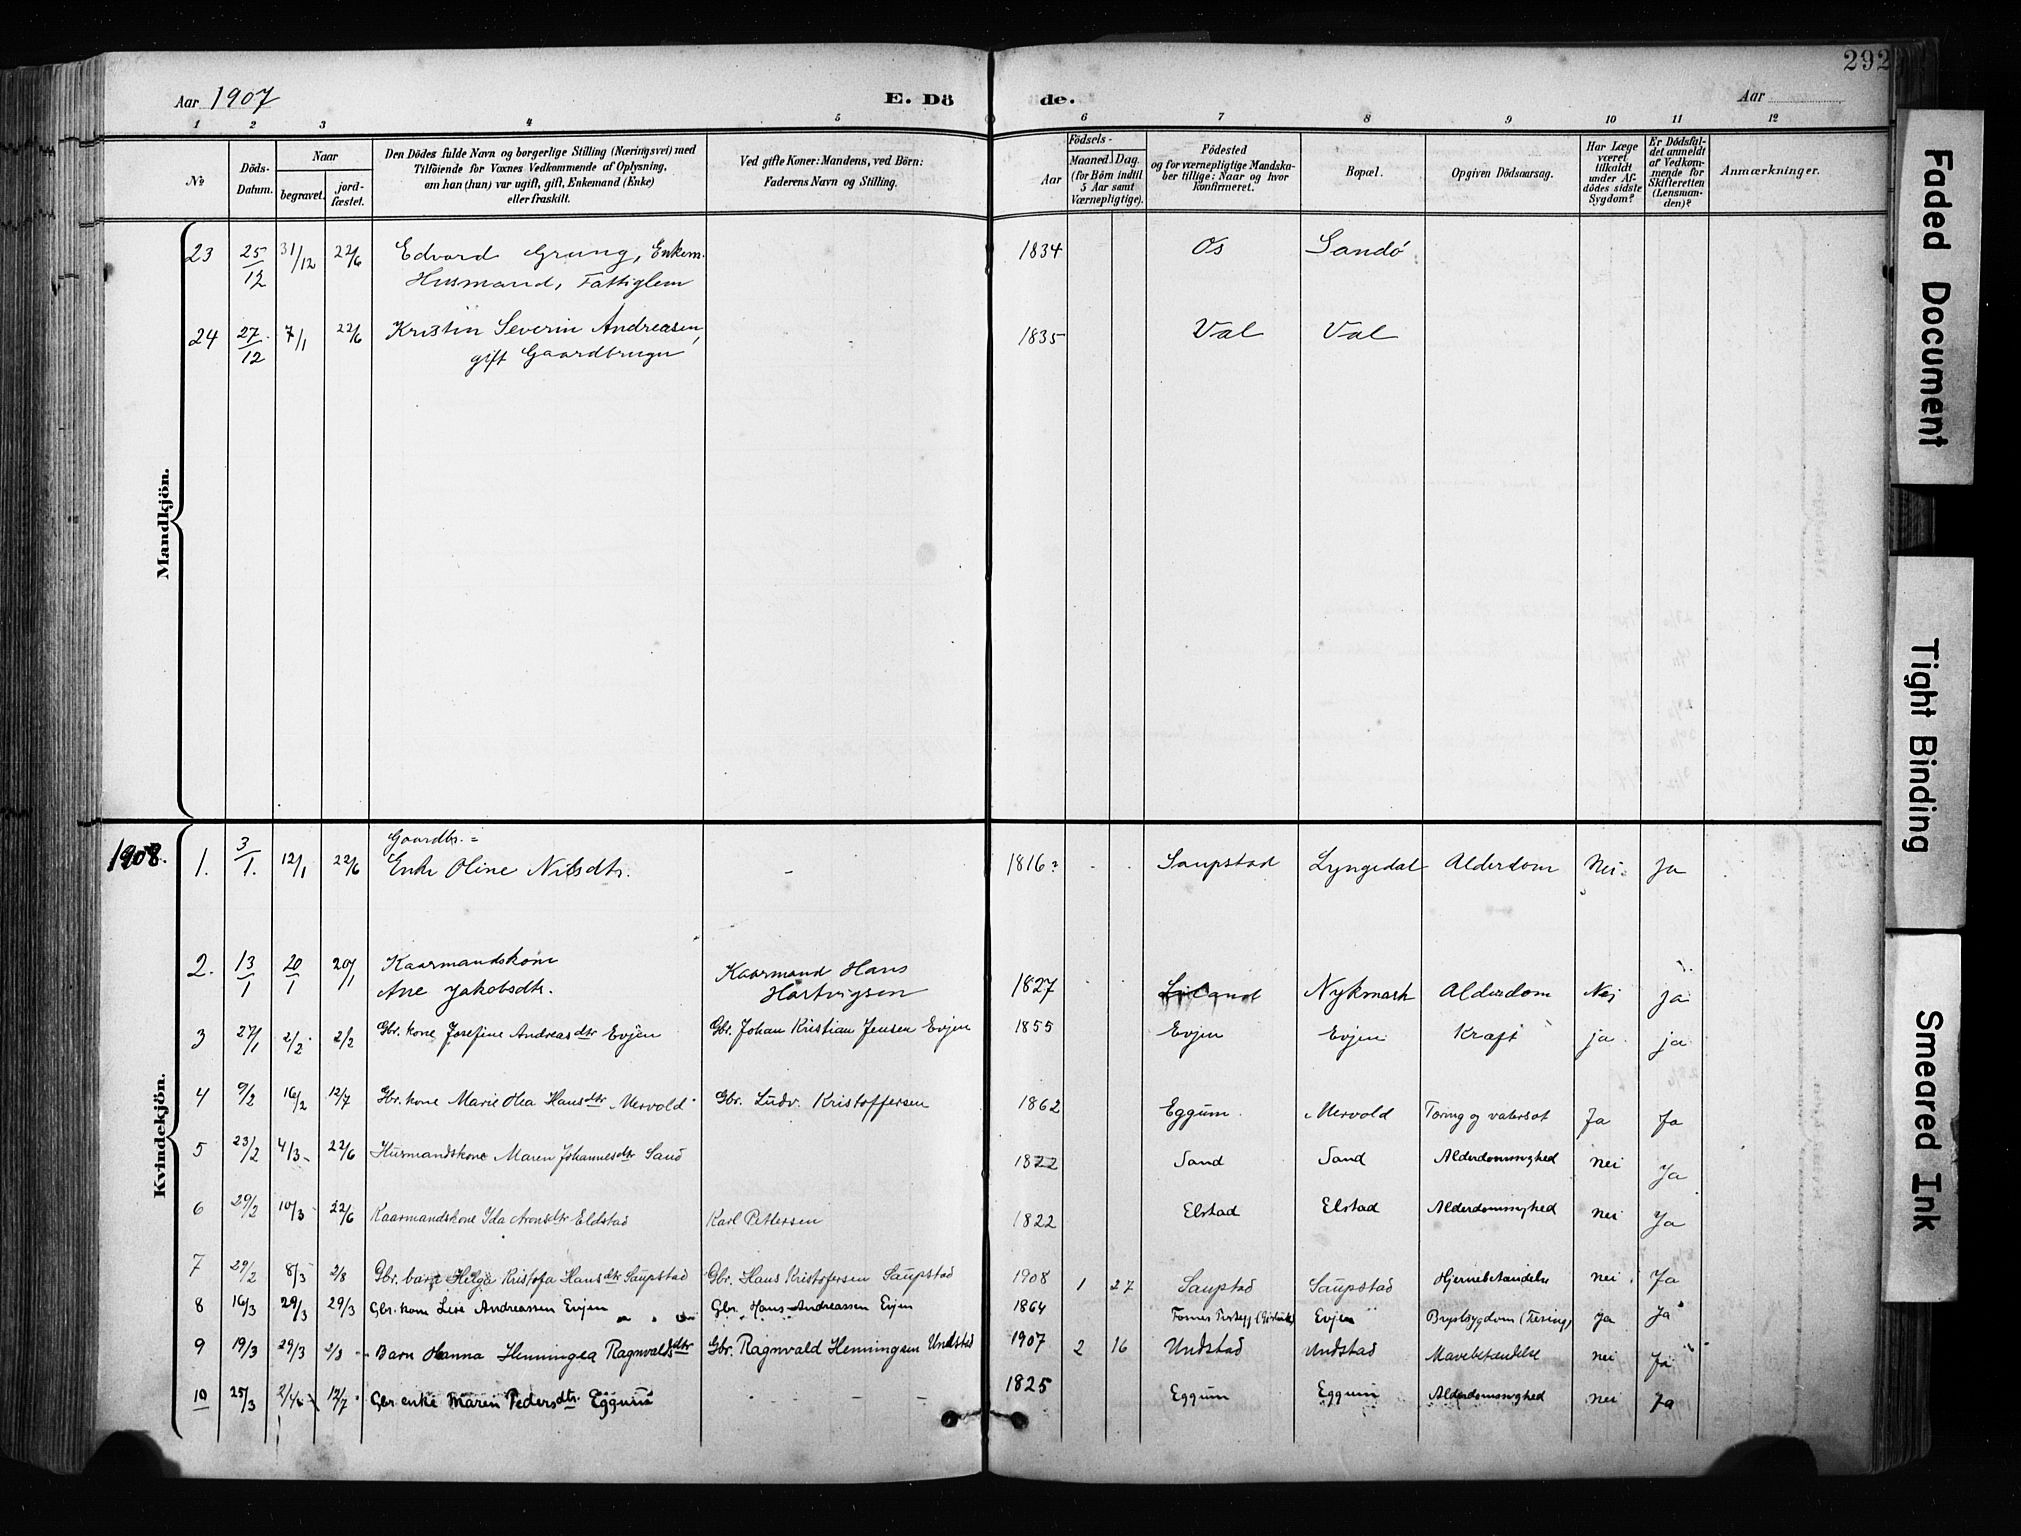 292
Aar 1907 E. Dö de. Aar
1 2 3 4 5 6 7 8 9 10 11 12
№
Döds-Datum.
Naar
begravet. jord-fæstet.
Den Dödes fulde Navn og borgerlige Stilling (Næringsvei) med
Tilföiende for Voxnes Vedkommende af Oplysning,
om han (hun) var ugift, gift, Enkemand (Enke)
eller fraskilt.
Ved gifte Koner: Mandens, ved Börn:
Faderens Navn og Stilling.
Aar
Födsels-
Maaned. Dag.
(for Börn indtil
5 Aar samt
Værnepligtige).
Födested
og for værnepligtige Mandska-
ber tillige: Naar og hvor
konfirmeret.
Bopæl.
Opgiven Dödsaarsag.
Har Læge
været
tilkaldt
under Af-
dödes sidste
Sygdom?
Er Dödsfal-
det anmeldt
af Vedkom-
mende for
Skifteretten
(Lensman-
den)?
Anmærkninger.
Mandkjön.
23 25/12 31/12 22/6 Edvard Grung, Enkem. 1834 Os Sandö
Husmand, Fattiglem
24 27/12 7/1 22/6 Kristin Severin Andreasen, 1835 Val Val
gift Gaardbruger
1908.
Kvindekjön.
Gaardbr.=
1. 3/1. 12/1 22/6 Enke Oline Nilsdtr. - 1816? Saupstad Lyngedal Alderdom Nei. Ja
2. 13/1 20/1 20/1 Kaarmandskone Kaarmand Hans
Ane Jakobsdtr. Hartvigsen 1827 Nykmark Alderdom Nei ja
3 27/1 2/2 2/2 Gbr. kone Josefine Andreasdtr Evjen Gbr. Johan Kristian Jensen Evjen 1855 Evjen Evjen Kræft ja ja
4 9/2 16/2 12/7 Gbr. kone Marie Hansdtr Mervold Gbr. Ludv. Kristoffersen 1862 Eggum Mervold Tæring og vatersot Ja Ja
5 23/2 4/3 22/6 Husmandskone Maren Johannesdtr Sand 1822 Sand Sand Alderdomsyghed nei Ja
6 29/2 10/3 22/6 Kaarmandskone Ida Aronsdtr Eldstad Karl Pettersen 1822 Elstad Elstad Alderdomsyghed nei Ja
7 29/2 8/3 2/8 Gbr. barn Helga Kristofa Hansdtr Saupstad Gbr. Hans Kristofersen Saupstad 1908 1 27 Saupstad Saupstad Hjernebetændelse nei Ja
8 16/3 29/3 29/3 Gbr. kone Lise Andreassen Evjen Gbr. Hans Andreassen Evjen 1864 Evjen Brystsygdom (Tæring) Ja Ja
9 19/3 29/3 2/8 Barn Hanna Henningea Ragnvaldsdtr Gbr. Ragnvald Henningsen Undstad 1907 2 16 Undstad Undstad Mavebetændelse nei Ja
10 25/3 12/7 Gbr. enke Maren Pedersdtr. Eggum - - - 1825 Eggum Eggum Alderdomsyghed nei Ja
Faded Document
Tight Binding
Smeared Ink